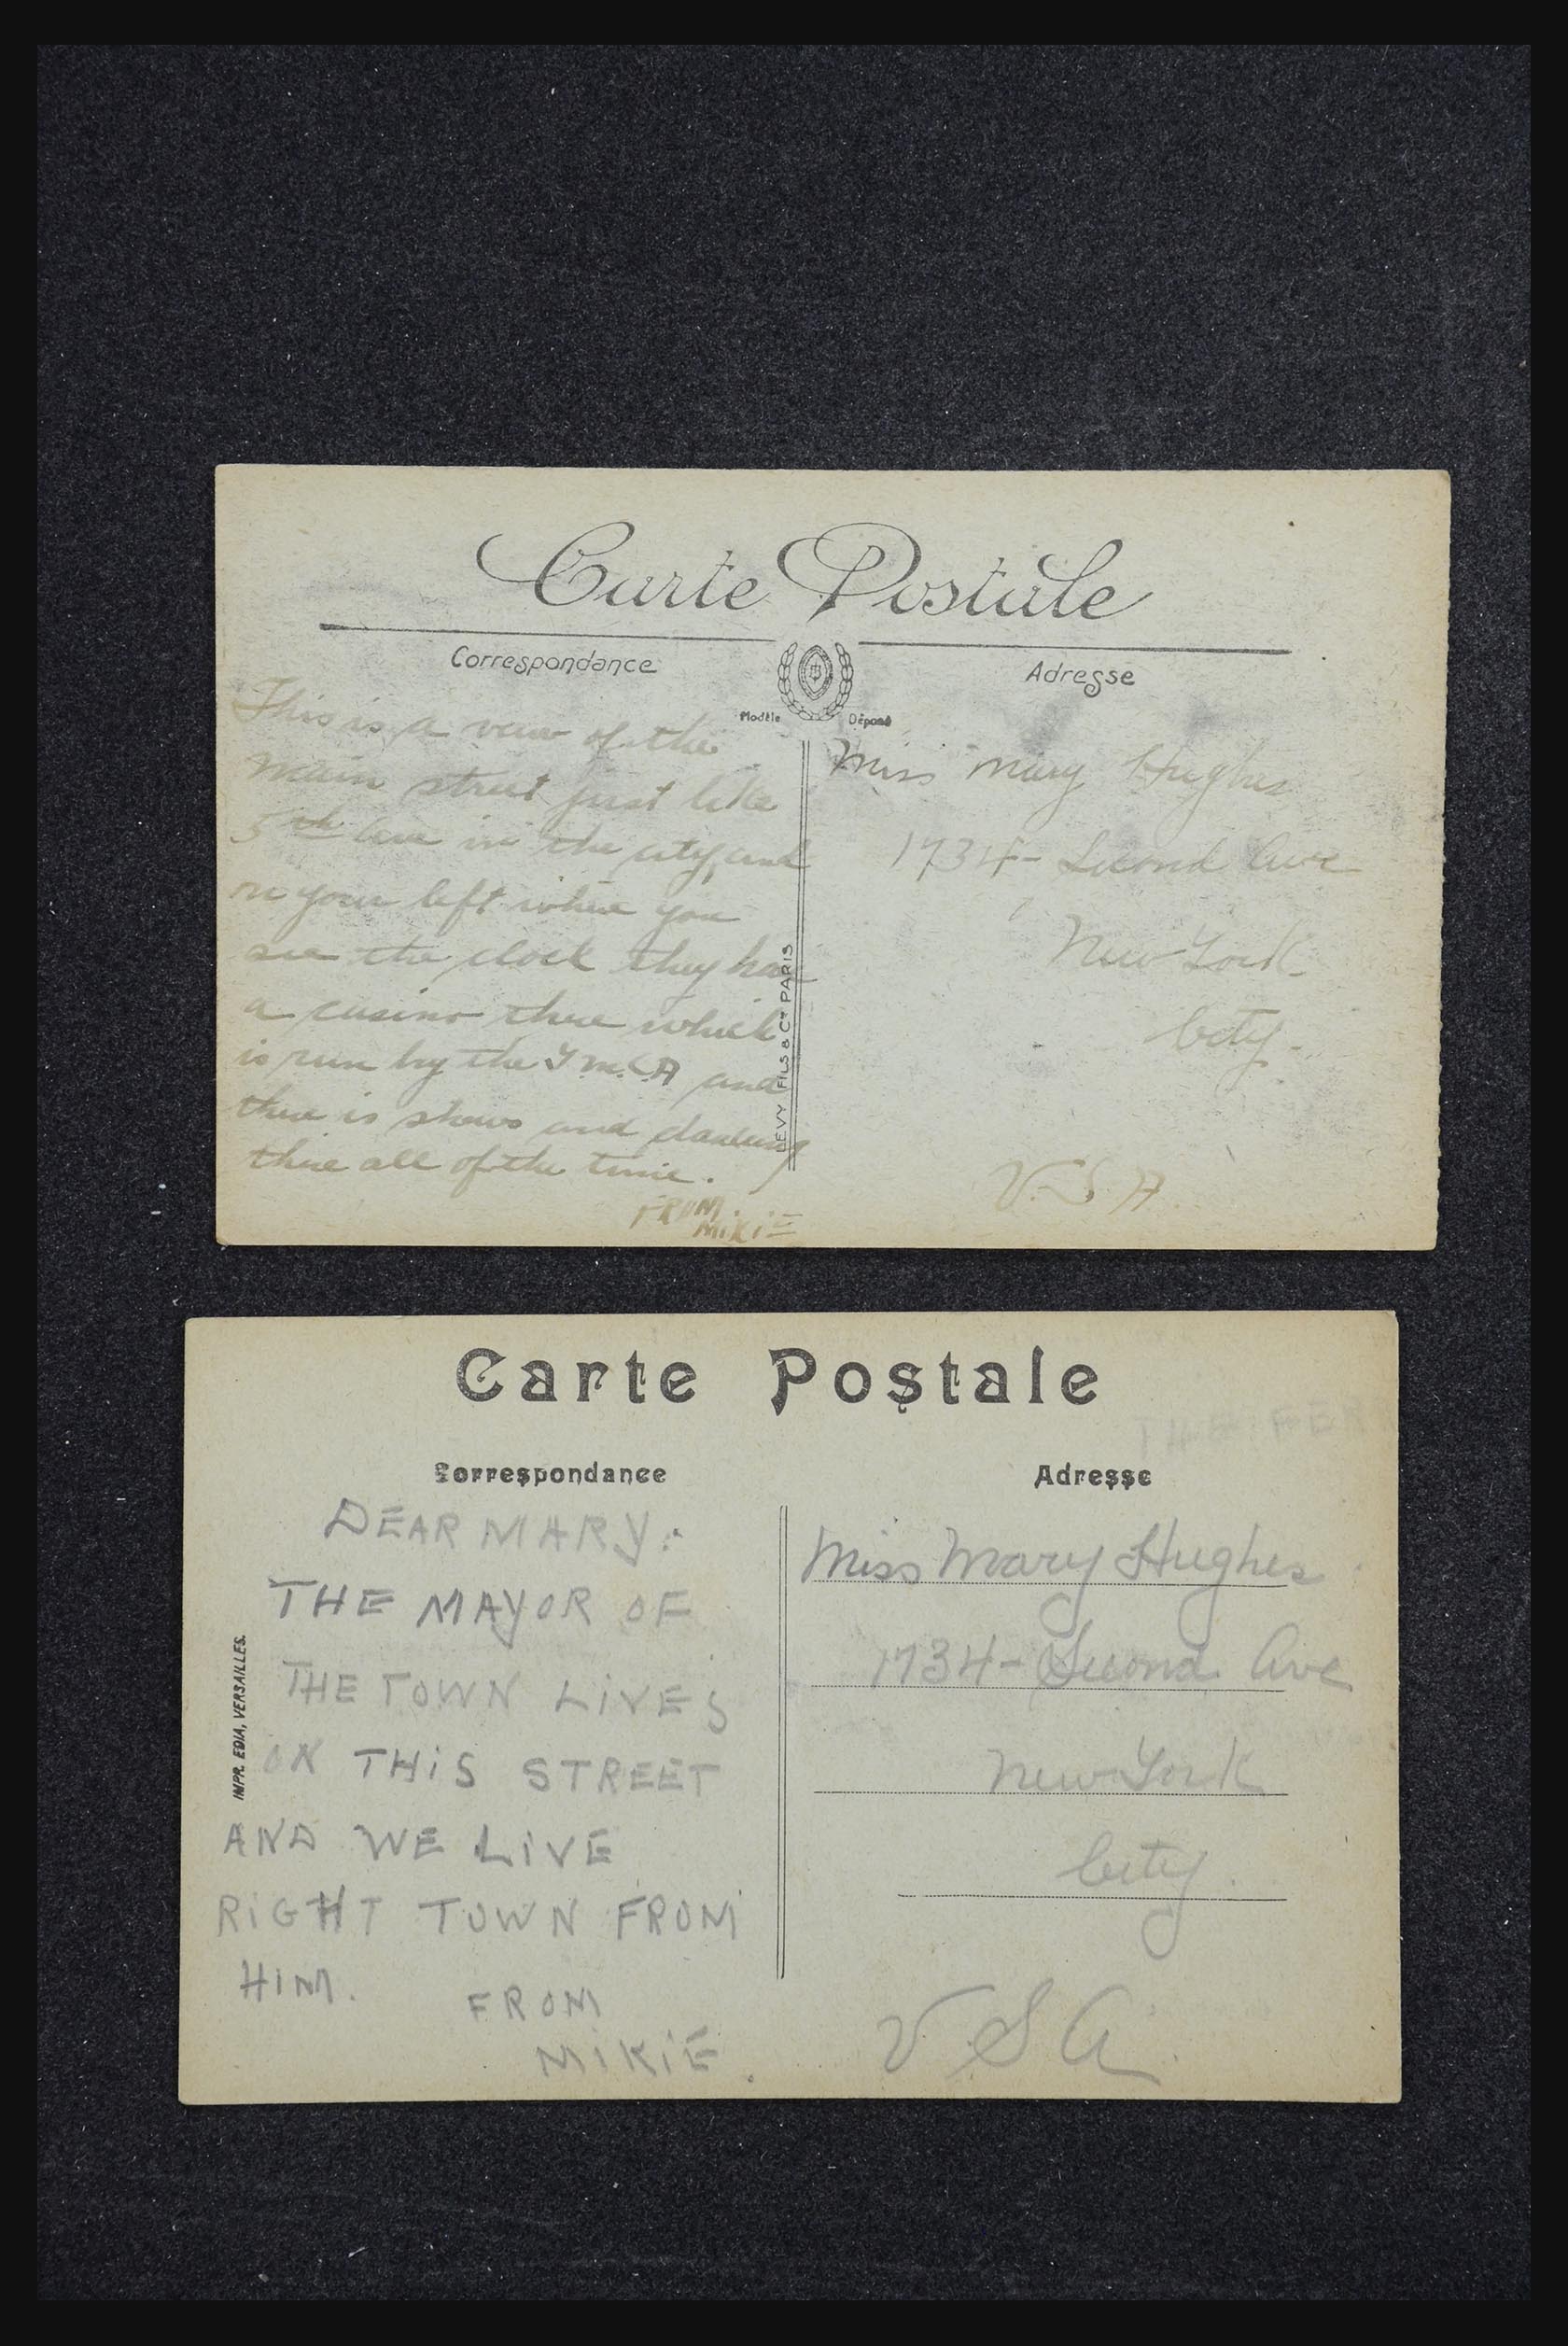 Carte Postale
Correspondance
Adresse
Modèle Déposé
This is a veiw of the
main street just like
5th ave in the city, and
on your left where you
see the clock they have
a casino there which
is run by the Y.M.C.A and
there is shows and dancing
there all of the time.
FROM.
MIKIE
LEVY FILS & Cie PARIS
Miss Mary Hughes
1734- Second Ave
New York
City.
U.S.A.
Carte Postale
Correspondance
Adresse
THE FER
DEAR MARY:
THE MAYOR OF
THE TOWN LIVES
ON THIS STREET
AND WE LIVE
RIGHT TOWN FROM
HIM.
FROM
MIKIE.
IMPR. EDIA, VERSAILLES.
Miss Mary Hughes
1734- Second Ave
New York
City.
U.S.A.